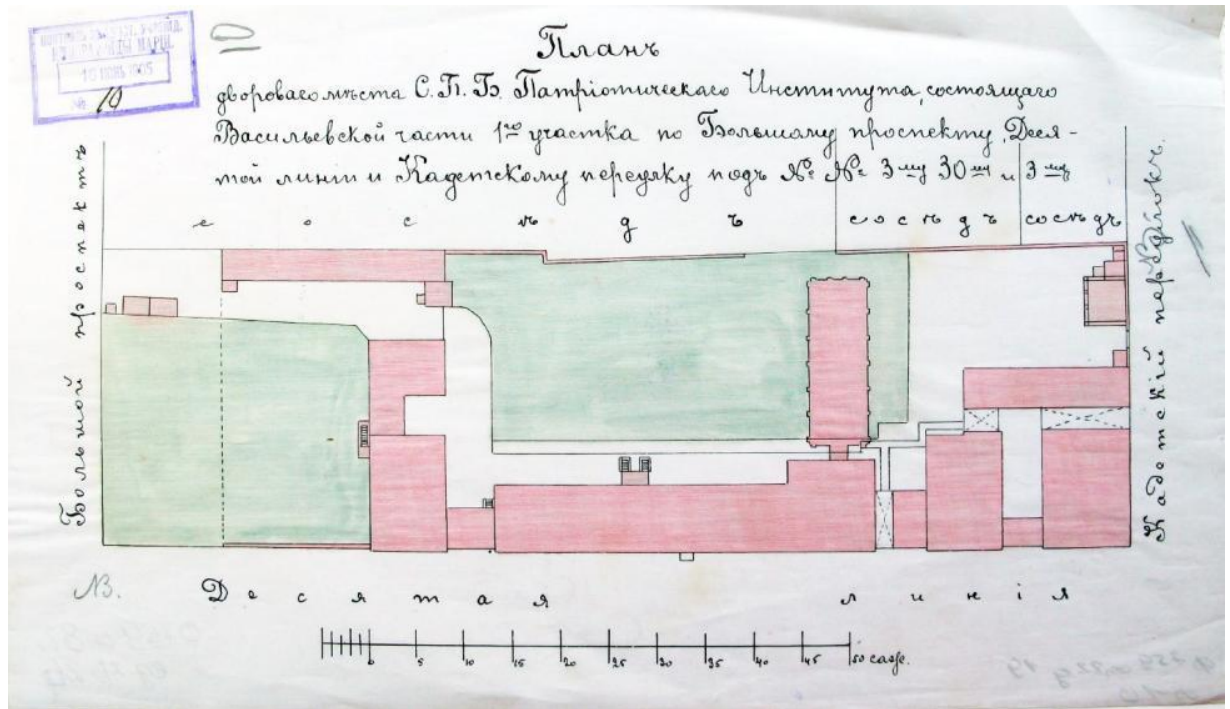 16 НОЯ 1905
№ 10
Планъ
двороваго мѣста С. П. Б. Патріотическаго Института, состоящаго
Васильевской части 1го участка по Большому проспекту, Деся-
той линіи и Кадетскому переулку подъ №№ 3му 30му и 3му
сосѣдъ сосѣдъ сосѣдъ
Большой проспектъ
Кадетскій
Десятая линія
0 5 10 15 20 25 30 35 40 45 50 саж.